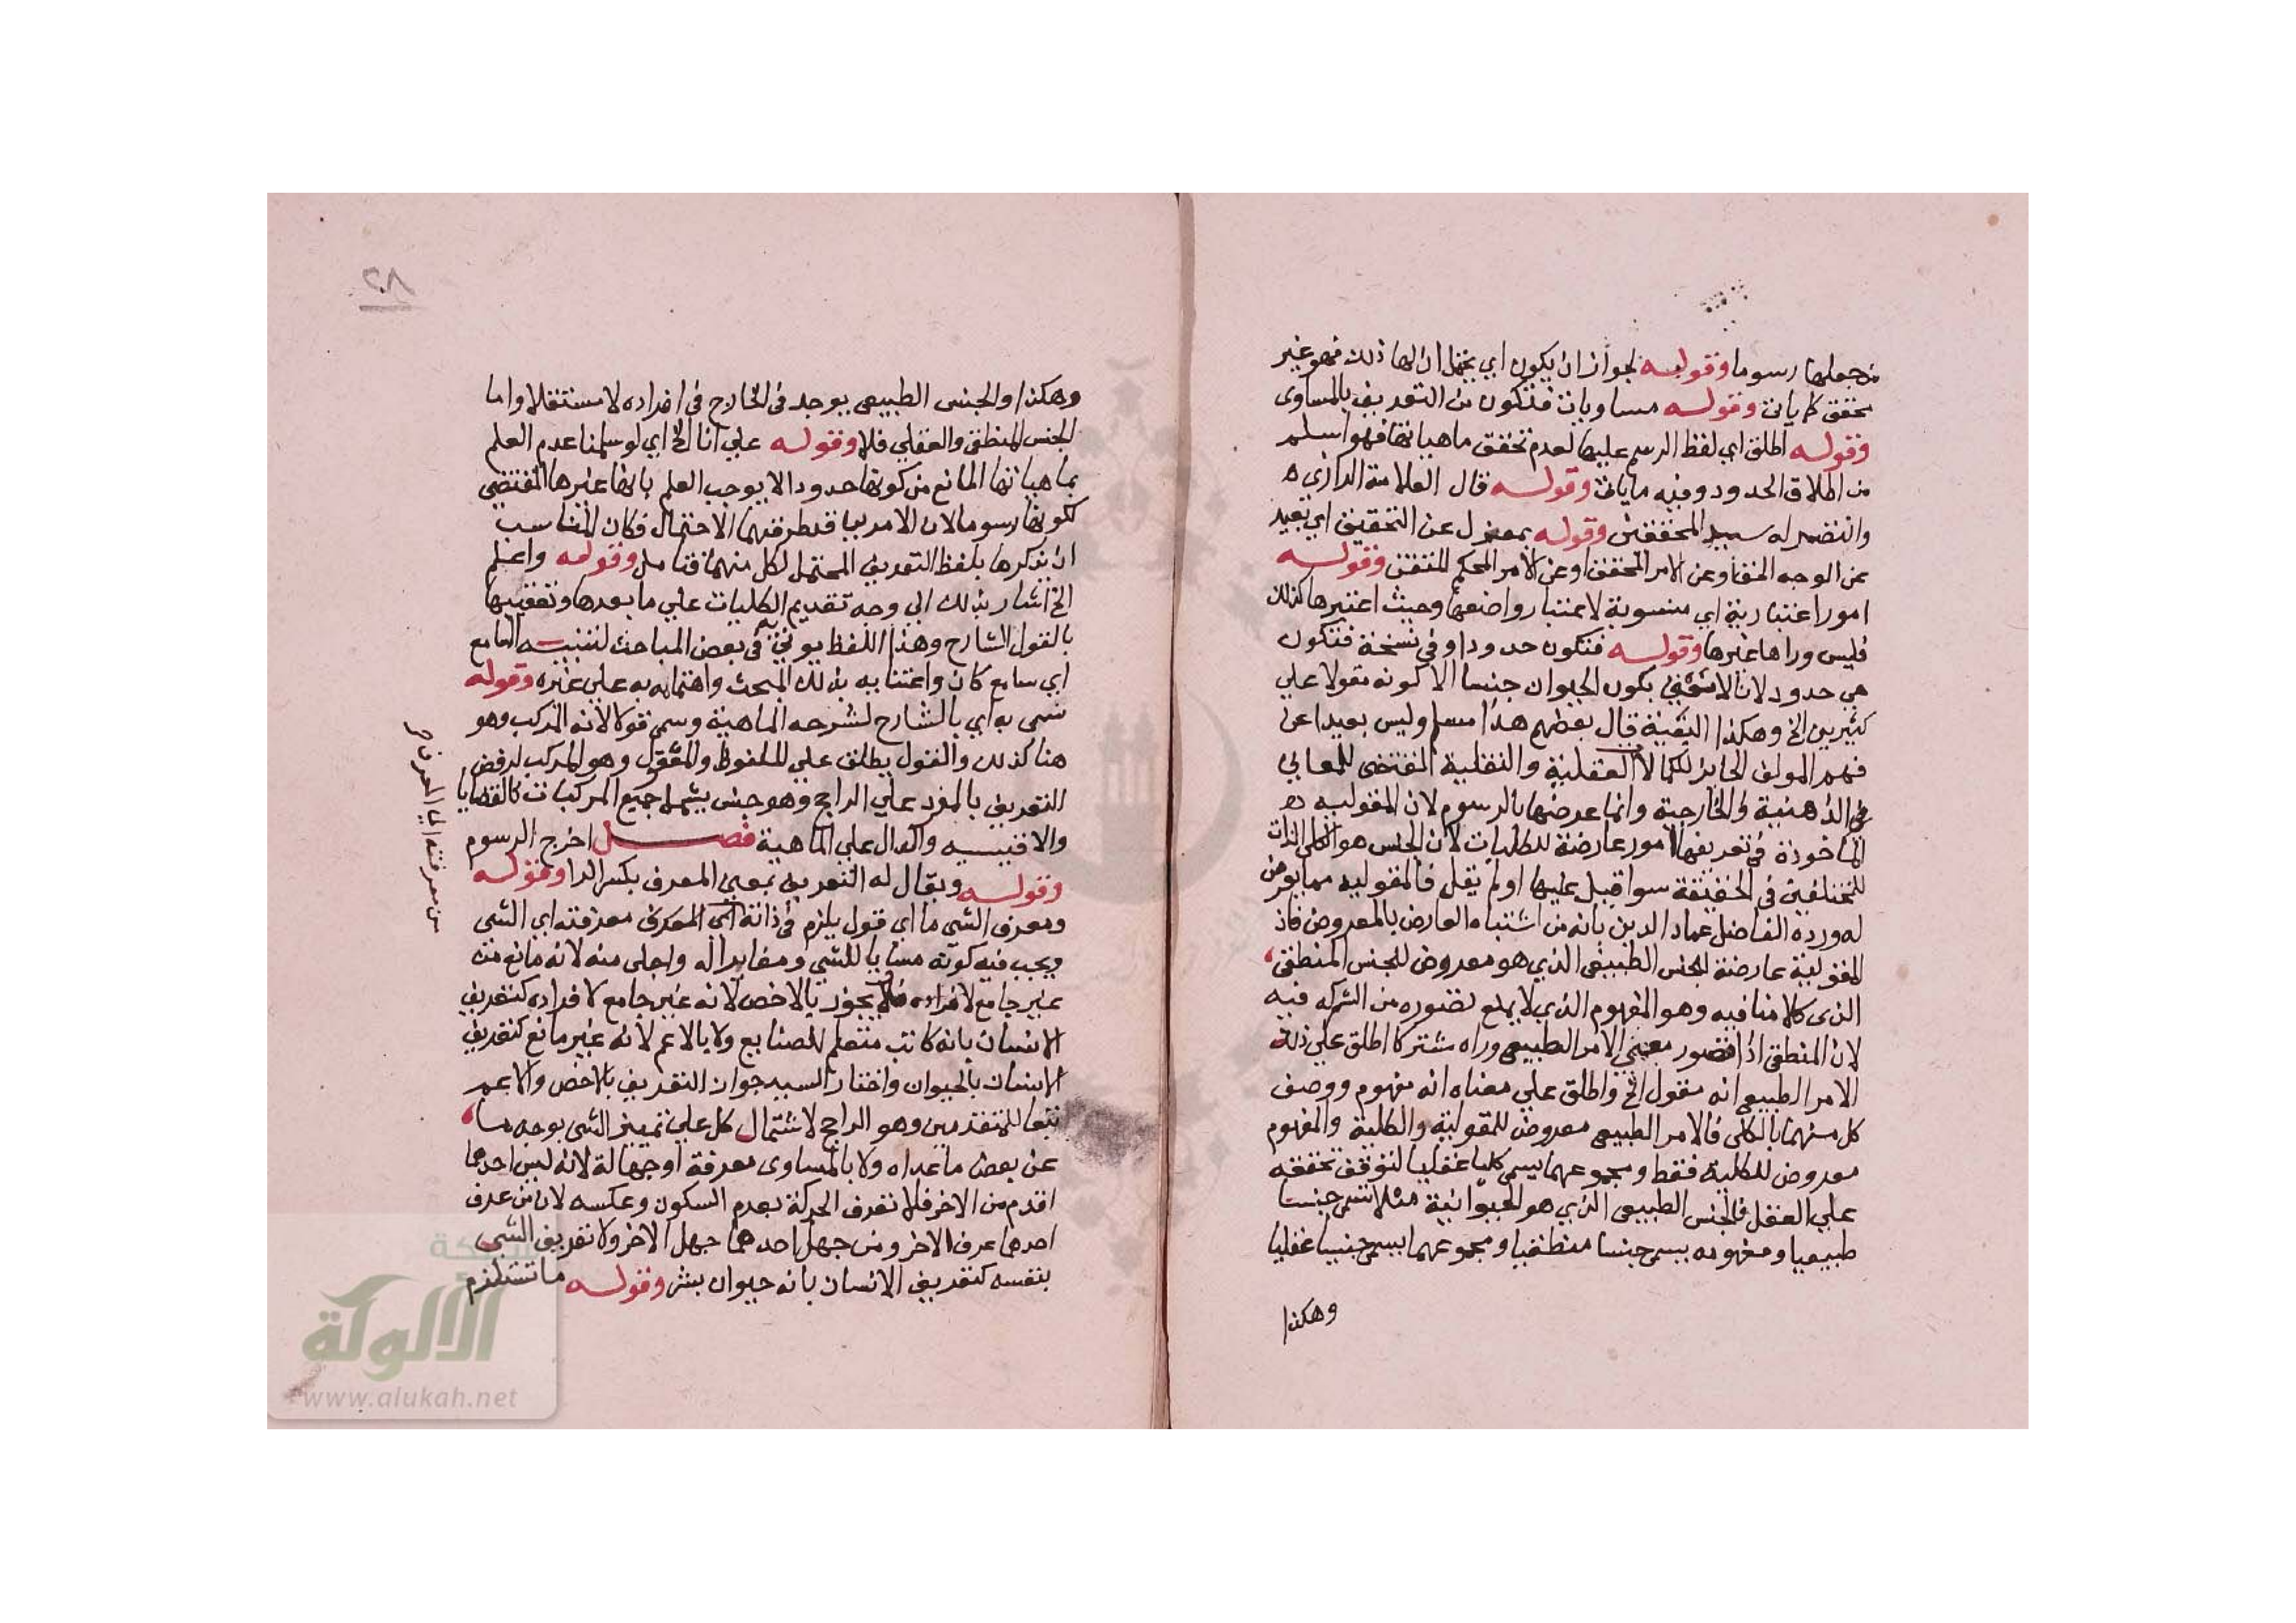 من جعلها رسوما وقوله لجواز ان يكون اي يحتمل ان لها ذلك فهو غير
محقق كما ياتي وقوله مساويات فتكون من التعريف بالمساوى
وقوله اطلق اي لفظ الرسم عليها لعدم تحقق ماهياتها فهو اسلم
من اطلاق الحدود وفيه ما ياتي وقوله قال العلامة الرازى ه
وانتصر له سيد المحققين وقوله بمعزل عن التحقيق اي بعيد
عن الوجه الحق او عن الامر المحقق او عن الامر المحكم المتقن وقوله
امور اعتبارية اي منسوبة لاعتبار واضعها وحيث اعتبرها كذلك
فليس وراها غيرها وقوله فتكون حدودا وفي نسخة فتكون
هي حدود لانا لا نعني بكون الحيوان جنسا الا كونه مقولا علي
كثيرين الخ وهكذا البقية قال بعضهم هذا مسلم وليس بعيدا عن
فهم المولف الحايز لكمالات العقلية والنقلية المقتضى للمعاني
الذهنية والخارجية وانما عرضها بالرسوم لان المقوليه
الماخوذة في تعريفها امور عارضة للكليات لان الجنس هو الكلى الذات
للمختلفين في الحقيقة سوا قيل عليها اولم يقل فالمقوليه مما يعرض
له ورده الفاضل عماد الدين بانه من اشتباه العارض بالمعروض فان
المقولية عارضة للجنس الطبيعى الذي هو معروض للجنس المنطقى
الذى كلامنا فيه وهو المفهوم الذي لا يمنع تصوره من الشركه فيه
لان المنطقى اذا تصور معنى الامر الطبيعى وراه مشتركا اطلق علي ذلك
الامر الطبيعى انه مقول الخ واطلق علي معناه انه مفهوم ووصف
كل منهما بالكلى فالامر الطبيعى معروض للمقولية والكلية والمفهوم
معروض للكلية فقط ومجموعهما يسمى كليا عقليا لتوقف تحققه
علي العقل فالجنس الطبيعى الذي هو الحيوانية مثلا تسمى جنسا
طبيعيا ومفهومه يسمى جنسا منطقيا ومجموعهما يسمى جنسا عقليا
وهكذا
٢٨
وهكذا والجنس الطبيعى يوجد في الخارج في افراده لا مستقلا واما
الجنس المنطقى والعقلي فلا وقوله علي انا الخ اي لو سلمنا عدم العلم
بماهياتها المانع من كونها حدودا لا يوجب العلم بانها غيرها المقتضى
لكونها رسوما لان الامر بينا فتطرق فيهما الاحتمال فكان المناسب
ان يذكرها بلفظ التعريف المحتمل لكل منهما فتامل وقوله واعلم
الخ اشار بذلك الي وجه تقديم الكليات علي ما بعدها وتعقيبها
بالقول الشارح وهذا اللفظ يوتى به في بعض المباحث لتنبيه السامع
اي سامع كان واعتنا به بذلك المبحث واهتمامه به على غيره وقوله
سمى به اي بالشارح لشرحه الماهية وسمى قولا لانه المركب وهو
هنا كذلك والقول يطلق علي الملفوظ والمعقول وهو المركب لرفض
التعريف بالمفرد علي الراجح وهو جنس يشمل جميع المركبات كالقضايا
والاقيسه والدال علي الماهية فصل اخرج الرسوم
وقوله ويقال له التعريف بمعنى المعرف بكسر الرا وقوله
ومعرف الشى ما اي قول يلزم في ذاته اي المعرف معرفته اي الشى
ويجب فيه كونه مساويا للشى ومغايرا له واجلى منه لانه مانع منه
غير جامع لافراده فلا يجوز بالاخص لانه غير جامع لافراده كتعريف
الانسان بانه كاتب متعلم للصنايع ولا بالاعم لانه غير مانع كتعريف
الانسان بالحيوان واختار السيد جواز التعريف بالاخص والاعم
تبعا للمتقدمين وهو الراجح لاشتمال كل علي تمييز الشى بوجه ما
عن بعض ما عداه ولا بالمساوى معرفة او جهالة لانه ليس احدهما
اقدم من الاخر فلا تعرف الحركة بعدم السكون وعكسه لان من عرف
احدهما عرف الاخر ومن جهل احدهما جهل الاخر ولا تعريف الشى
بنفسه كتعريف الانسان بانه حيوان بشر وقوله ما تستلزم
من معرفته الي المعرف
شبكة
الألوكة
www.alukah.net